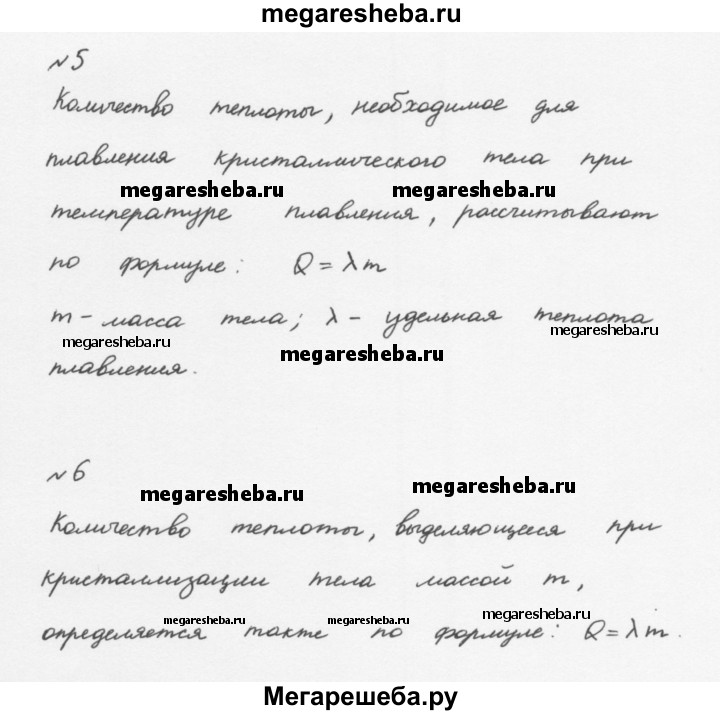 megaresheba.ru
№5
Количество теплоты, необходимое для
плавления кристаллического тела при
megaresheba.ru megaresheba.ru
температуре плавления, рассчитывают
по формуле: Q = λm
m - масса тела; λ - удельная теплота
megaresheba.ru megaresheba.ru megaresheba.ru
плавления.
№6
megaresheba.ru megaresheba.ru
Количество теплоты, выделяющееся при
кристаллизации тела массой m,
megaresheba.ru megaresheba.ru megaresheba.ru
определяется также по формуле: Q = λm.
Мегарешеба.ру